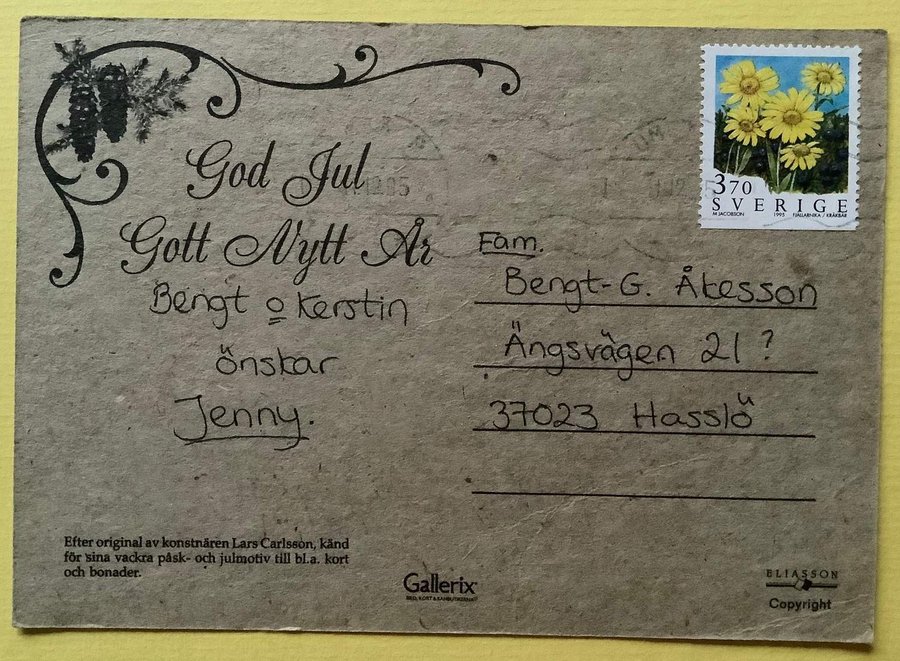 God Jul
Gott Nytt År
Bengt o Kerstin
önskar
Jenny.
Fam.
Bengt-G. Åkesson
Ängsvägen 21 ?
37023 Hasslö
3 70
SVERIGE
M JACOBSON 1995 FJÄLLARNIKA / KRÅKBÄR
Efter original av konstnären Lars Carlsson, känd
för sina vackra påsk- och julmotiv till bl.a. kort
och bonader.
Gallerix
ELIASSON
Copyright